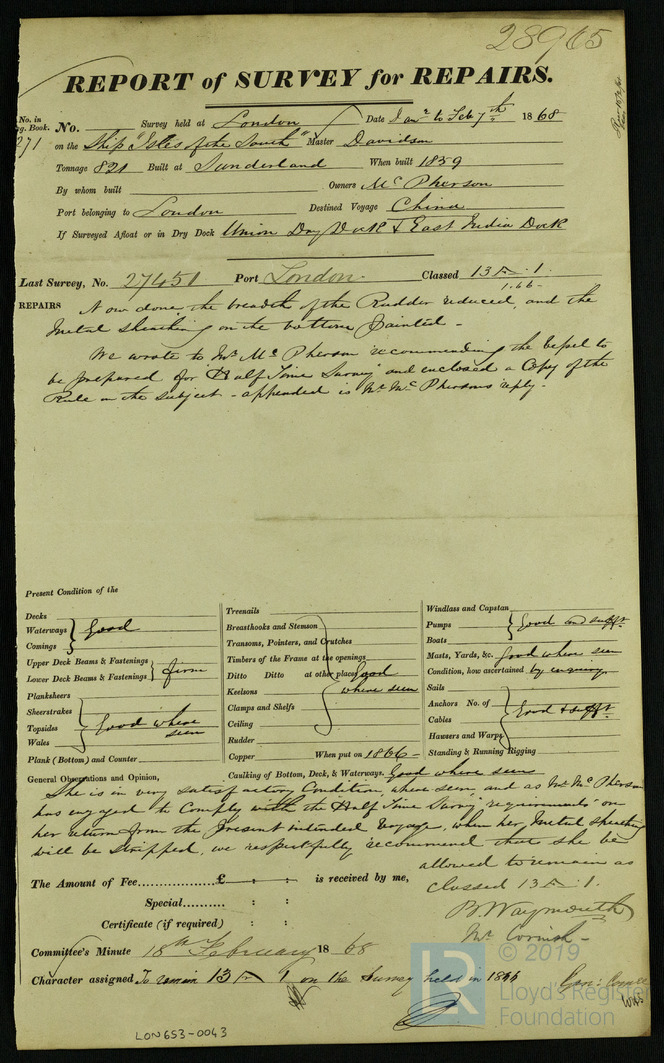 28965
REPORT of SURVEY for REPAIRS.
No. in Reg. Book. No. Survey held at London Date Jany to Feb 7th 1868
271 on the Ship "Isles of the South" Master Davidson
Tonnage 821 Built at Sunderland When built 1859
By whom built Owners McPherson
Port belonging to London Destined Voyage China
If Surveyed Afloat or in Dry Dock Union Dry Dock & East India Dock
Last Survey, No. 27451 Port London. Classed 13 A. 1.
1.66-
REPAIRS Now done, the breadth of the Rudder reduced, and the
Metal sheathing on the bottom painted -
We wrote to Mr McPherson recommending the vessel to
be prepared for "Half Time Survey" and enclosed a Copy of the
Rule on the subject - appended is Mr McPhersons reply -
Present Condition of the
Decks
Waterways } Good
Comings
Upper Deck Beams & Fastenings } firm
Lower Deck Beams & Fastenings
Planksheers
Sheerstrakes
Topsides } Good where seen
Wales
Plank (Bottom) and Counter
Treenails
Breasthooks and Stemson
Transoms, Pointers, and Crutches
Timbers of the Frame at the openings
Ditto Ditto at other places Good
Keelsons where seen
Clamps and Shelfs
Ceiling
Rudder
Copper When put on 1866 -
Windlass and Capstan
Pumps } Good and sufft.
Boats
Masts, Yards, &c. Good where seen
Condition, how ascertained by enquiry
Sails
Anchors No. of } Good & sufft
Cables
Hawsers and Warps
Standing & Running Rigging
Caulking of Bottom, Deck, & Waterways. Good where seen
General Observations and Opinion,
She is in very satisfactory Condition, where seen, and as Mr McPherson
has engaged to Comply with the "Half Time Survey" requirements on
her return from the present intended voyage, when her Metal sheathing
will be stripped, we respectfully recommend that she be
allowed to remain as
classed 13 A. 1.
The Amount of Fee............£ : : is received by me,
Special........... : :
Certificate (if required) : :
B. Waymouth
Mr Cornish -
Committee's Minute 18th February 1868
Character assigned To remain 13 A 1 on the Survey held in 1866
LON653-0043
LR
© 2019
Lloyd's Register
Foundation